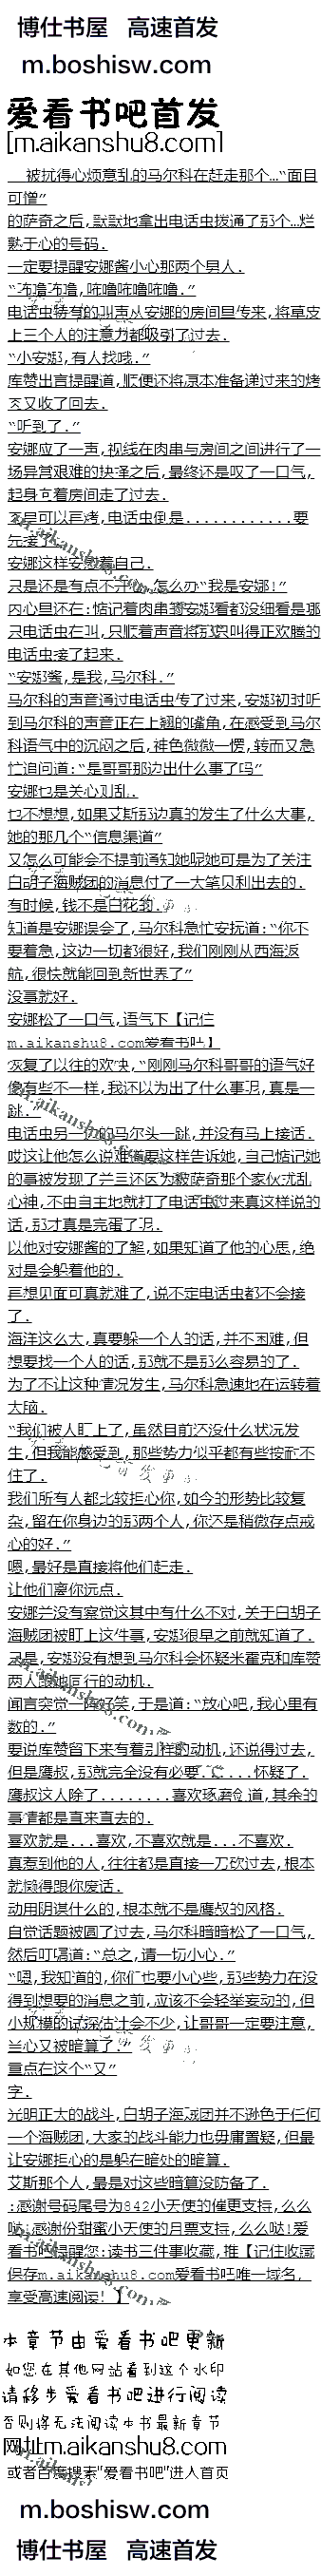 博仕书屋 高速首发
m.boshisw.com
爱看书吧首发
[m.aikanshu8.com]
被扰得心烦意乱的马尔科在赶走那个…“面目
可憎”
的萨奇之后,默默地拿出电话虫拨通了那个…烂
熟于心的号码.
一定要提醒安娜酱小心那两个男人.
“布噜布噜,咘噜咘噜咘噜.”
电话虫特有的叫声从安娜的房间里传来,将草皮
上三个人的注意力都吸引了过去.
“小安娜,有人找哦.”
库赞出言提醒道,顺便还将原本准备递过来的烤
肉又收了回去.
“听到了.”
安娜应了一声,视线在肉串与房间之间进行了一
场异常艰难的抉择之后,最终还是叹了一口气,
起身向着房间走了过去.
肉是可以再烤,电话虫倒是............要
先接了.
安娜这样安慰着自己.
只是还是有点不开心,怎么办“我是安娜!”
内心里还在:惦记着肉串的安娜看都没细看是哪
只电话虫在叫,只顺着声音将那只叫得正欢腾的
电话虫接了起来.
“安娜酱,是我,马尔科.”
马尔科的声音通过电话虫传了过来,安娜初时听
到马尔科的声音正在上翘的嘴角,在感受到马尔
科语气中的沉闷之后,神色微微一愣,转而又急
忙追问道:“是哥哥那边出什么事了吗”
安娜也是关心则乱.
也不想想,如果艾斯那边真的发生了什么大事,
她的那几个“信息渠道”
又怎么可能会不提前通知她呢她可是为了关注
白胡子海贼团的消息付了一大笔贝利出去的.
有时候,钱不是白花的.
知道是安娜误会了,马尔科急忙安抚道:“你不
要着急,这边一切都很好,我们刚刚从西海返
航,很快就能回到新世界了”
没事就好.
安娜松了一口气,语气下【记住
m.aikanshu8.com爱看书吧】
恢复了以往的欢快,“刚刚马尔科哥哥的语气好
像有些不一样,我还以为出了什么事呢,真是一
跳.”
电话虫另一边的马尔头一跳,并没有马上接话.
哎这让他怎么说难道要这样告诉她,自己惦记她
的事被发现了并三还因为被萨奇那个家伙扰乱
心神,不由自主地就打了电话虫过来真这样说的
话,那才真是完蛋了呢.
以他对安娜酱的了解,如果知道了他的心思,绝
对是会躲着他的.
再想见面可真就难了,说不定电话虫都不会接
了.
海洋这么大,真要躲一个人的话,并不困难,但
想要找一个人的话,那就不是那么容易的了.
为了不让这种情况发生,马尔科急速地在运转着
大脑.
“我们被人盯上了,虽然目前还没什么状况发
生,但我能感受到,那些势力似乎都有些按耐不
住了.
我们所有人都比较担心你,如今的形势比较复
杂,留在你身边的那两个人,你还是稍微存点戒
心的好.”
嗯,最好是直接将他们赶走.
让他们离你远点.
安娜并没有察觉这其中有什么不对,关于白胡子
海贼团被盯上这件事,安娜很早之前就知道了.
只是,安娜没有想到马尔科会怀疑米霍克和库赞
两人跟她同行的动机.
闻言突觉一阵好笑,于是道:“放心吧,我心里有
数的.”
要说库赞留下来有着别样的动机,还说得过去,
但是鹰叔,那就完全没有必要.......怀疑了.
鹰叔这人除了........喜欢琢磨剑道,其余的
事情都是直来直去的.
喜欢就是...喜欢,不喜欢就是...不喜欢.
真惹到他的人,往往都是直接一刀砍过去,根本
就懒得跟你废话.
动用阴谋什么的,根本就不是鹰叔的风格.
自觉话题被圆了过去,马尔科暗暗松了一口气,
然后叮嘱道:“总之,请一切小心.”
“嗯,我知道的,你们也要小心些,那些势力在没
得到想要的消息之前,应该不会轻举妄动的,但
小规模的试探估计会不少,让哥哥一定要注意,
当心又被暗算了.”
重点在这个“又”
字.
光明正大的战斗,白胡子海贼团并不逊色于任何
一个海贼团,大家的战斗能力也毋庸置疑,但最
让安娜担心的是躲在暗处的暗算.
艾斯那个人,最是对这些暗算没防备了.
:感谢号码尾号为842小天使的催更支持,么么
哒:感谢份甜蜜小天使的月票支持,么么哒!爱
看书吧提醒您:读书三件事收藏,推【记住收藏
保存m.aikanshu8.com爱看书吧唯一域名,
享受高速阅读!】
本章节由爱看书吧更新
如您在其他网站看到这个水印
请移步爱看书吧进行阅读
否则将无法阅读本书最新章节
网址m.aikanshu8.com
或者百度搜索"爱看书吧"进入首页
m.boshisw.com
博仕书屋 高速首发